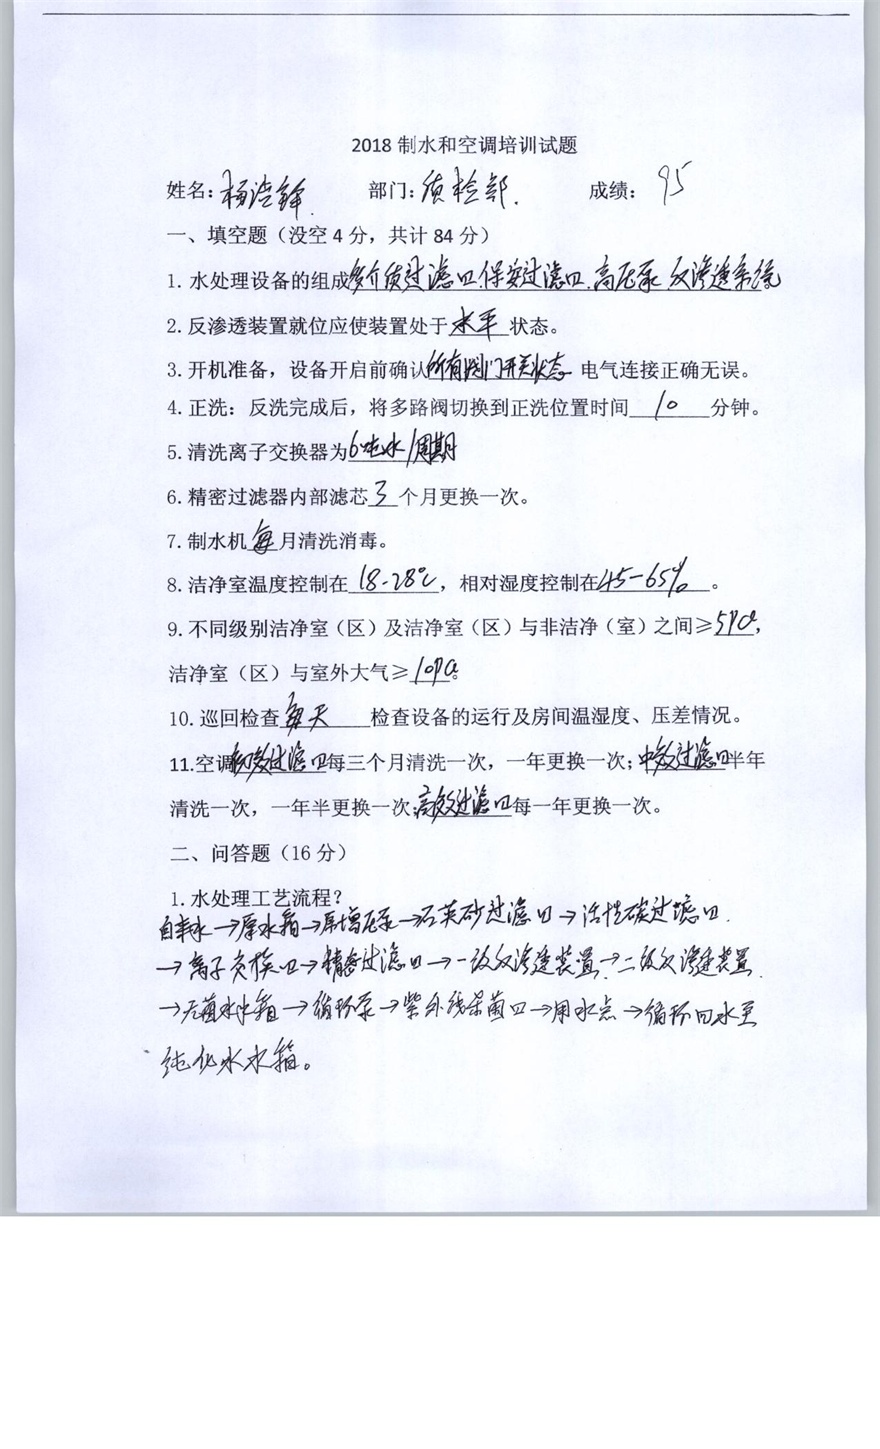 2018 制水和空调培训试题
姓名: 杨洁锋 部门: 质检部. 成绩: 95
一、填空题（没空 4 分，共计 84 分）
1. 水处理设备的组成多介质过滤口.保安过滤口.高压泵 反渗透系统
2. 反渗透装置就位应使装置处于 水平 状态。
3. 开机准备，设备开启前确认所有阀门开关状态 电气连接正确无误。
4. 正洗：反洗完成后，将多路阀切换到正洗位置时间 10 分钟。
5. 清洗离子交换器为6吨水/周期
6. 精密过滤器内部滤芯 3 个月更换一次。
7. 制水机 每 月清洗消毒。
8. 洁净室温度控制在 18-28℃，相对湿度控制在45-65%。
9. 不同级别洁净室（区）及洁净室（区）与非洁净（室）之间≥5Pa，
洁净室（区）与室外大气≥10Pa。
10. 巡回检查 每天 检查设备的运行及房间温湿度、压差情况。
11.空调初效过滤口每三个月清洗一次，一年更换一次；中效过滤口半年
清洗一次，一年半更换一次；高效过滤口每一年更换一次。
二、问答题（16 分）
1. 水处理工艺流程？
自来水→原水箱→原增压泵→石英砂过滤口→活性碳过滤口.
→离子交换口→精密过滤口→一级反渗透装置→二级反渗透装置.
→无菌水水箱→循环泵→紫外线杀菌口→用水点→循环回水至
纯化水水箱。